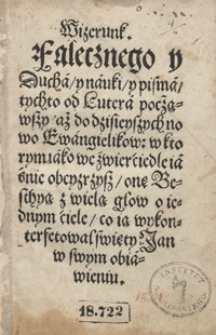 Wizerunk.
Falecznego y
Ducha/ y nauki/ y pisma/
tychto od Lutera począ=
wszy/ aż do dzisieyszych no
wo Ewángielikow: w kto
rym iáko we zwierciedle iá
śnie obeyzrzysz/ onę Be=
styą z wielą głow o ie=
dnym ciele/ co ią wykon=
terfetował święty Jan
w swym obiá=
wieniu.
18.722